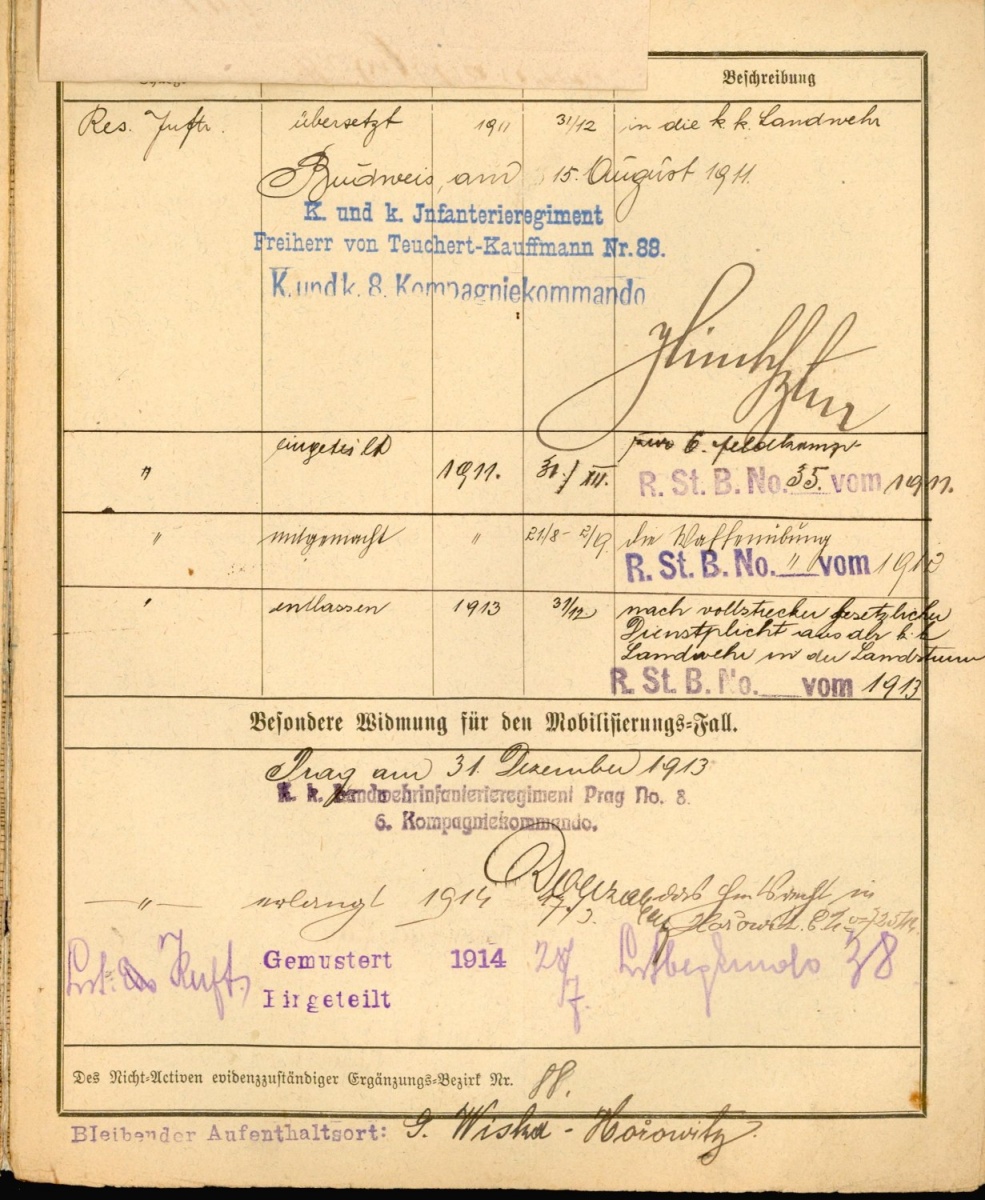 Beschreibung
Res. Inftr. übersetzt 1911 31/12 in die k. k. Landwehr
Budweis, am 15. August 1911.
K. und k. Jnfanterieregiment
Freiherr von Teuchert-Kauffmann Nr. 88.
K. und k. 8. Kompagniekommando
" eingeteilt 1911. 31./XII. zur 6. Feldkomp.
R. St. B. No. 35. vom 1911.
" mitgemacht " 21/8 - 2/9 die Waffenübung
R. St. B. No. " vom 1912
" entlassen 1913 31/12 nach vollstreckter gesetzlicher
Dienstplicht aus der k. k.
Landwehr in den Landsturm
R. St. B. No. vom 1913
Besondere Widmung für den Mobilisierungs-Fall.
Prag am 31. Dezember 1913
K. k. Landwehrinfanterieregiment Prag No. 8.
6. Kompagniekommando.
" erlangt 1914 17/3. das in
Hořowitz
Gemustert 1914 28/7. 38
Eingeteilt
Des Nicht-Activen evidenzzuständiger Ergänzungs-Bezirk Nr. 88.
Bleibender Aufenthaltsort: G. Wiska - Hořowitz.